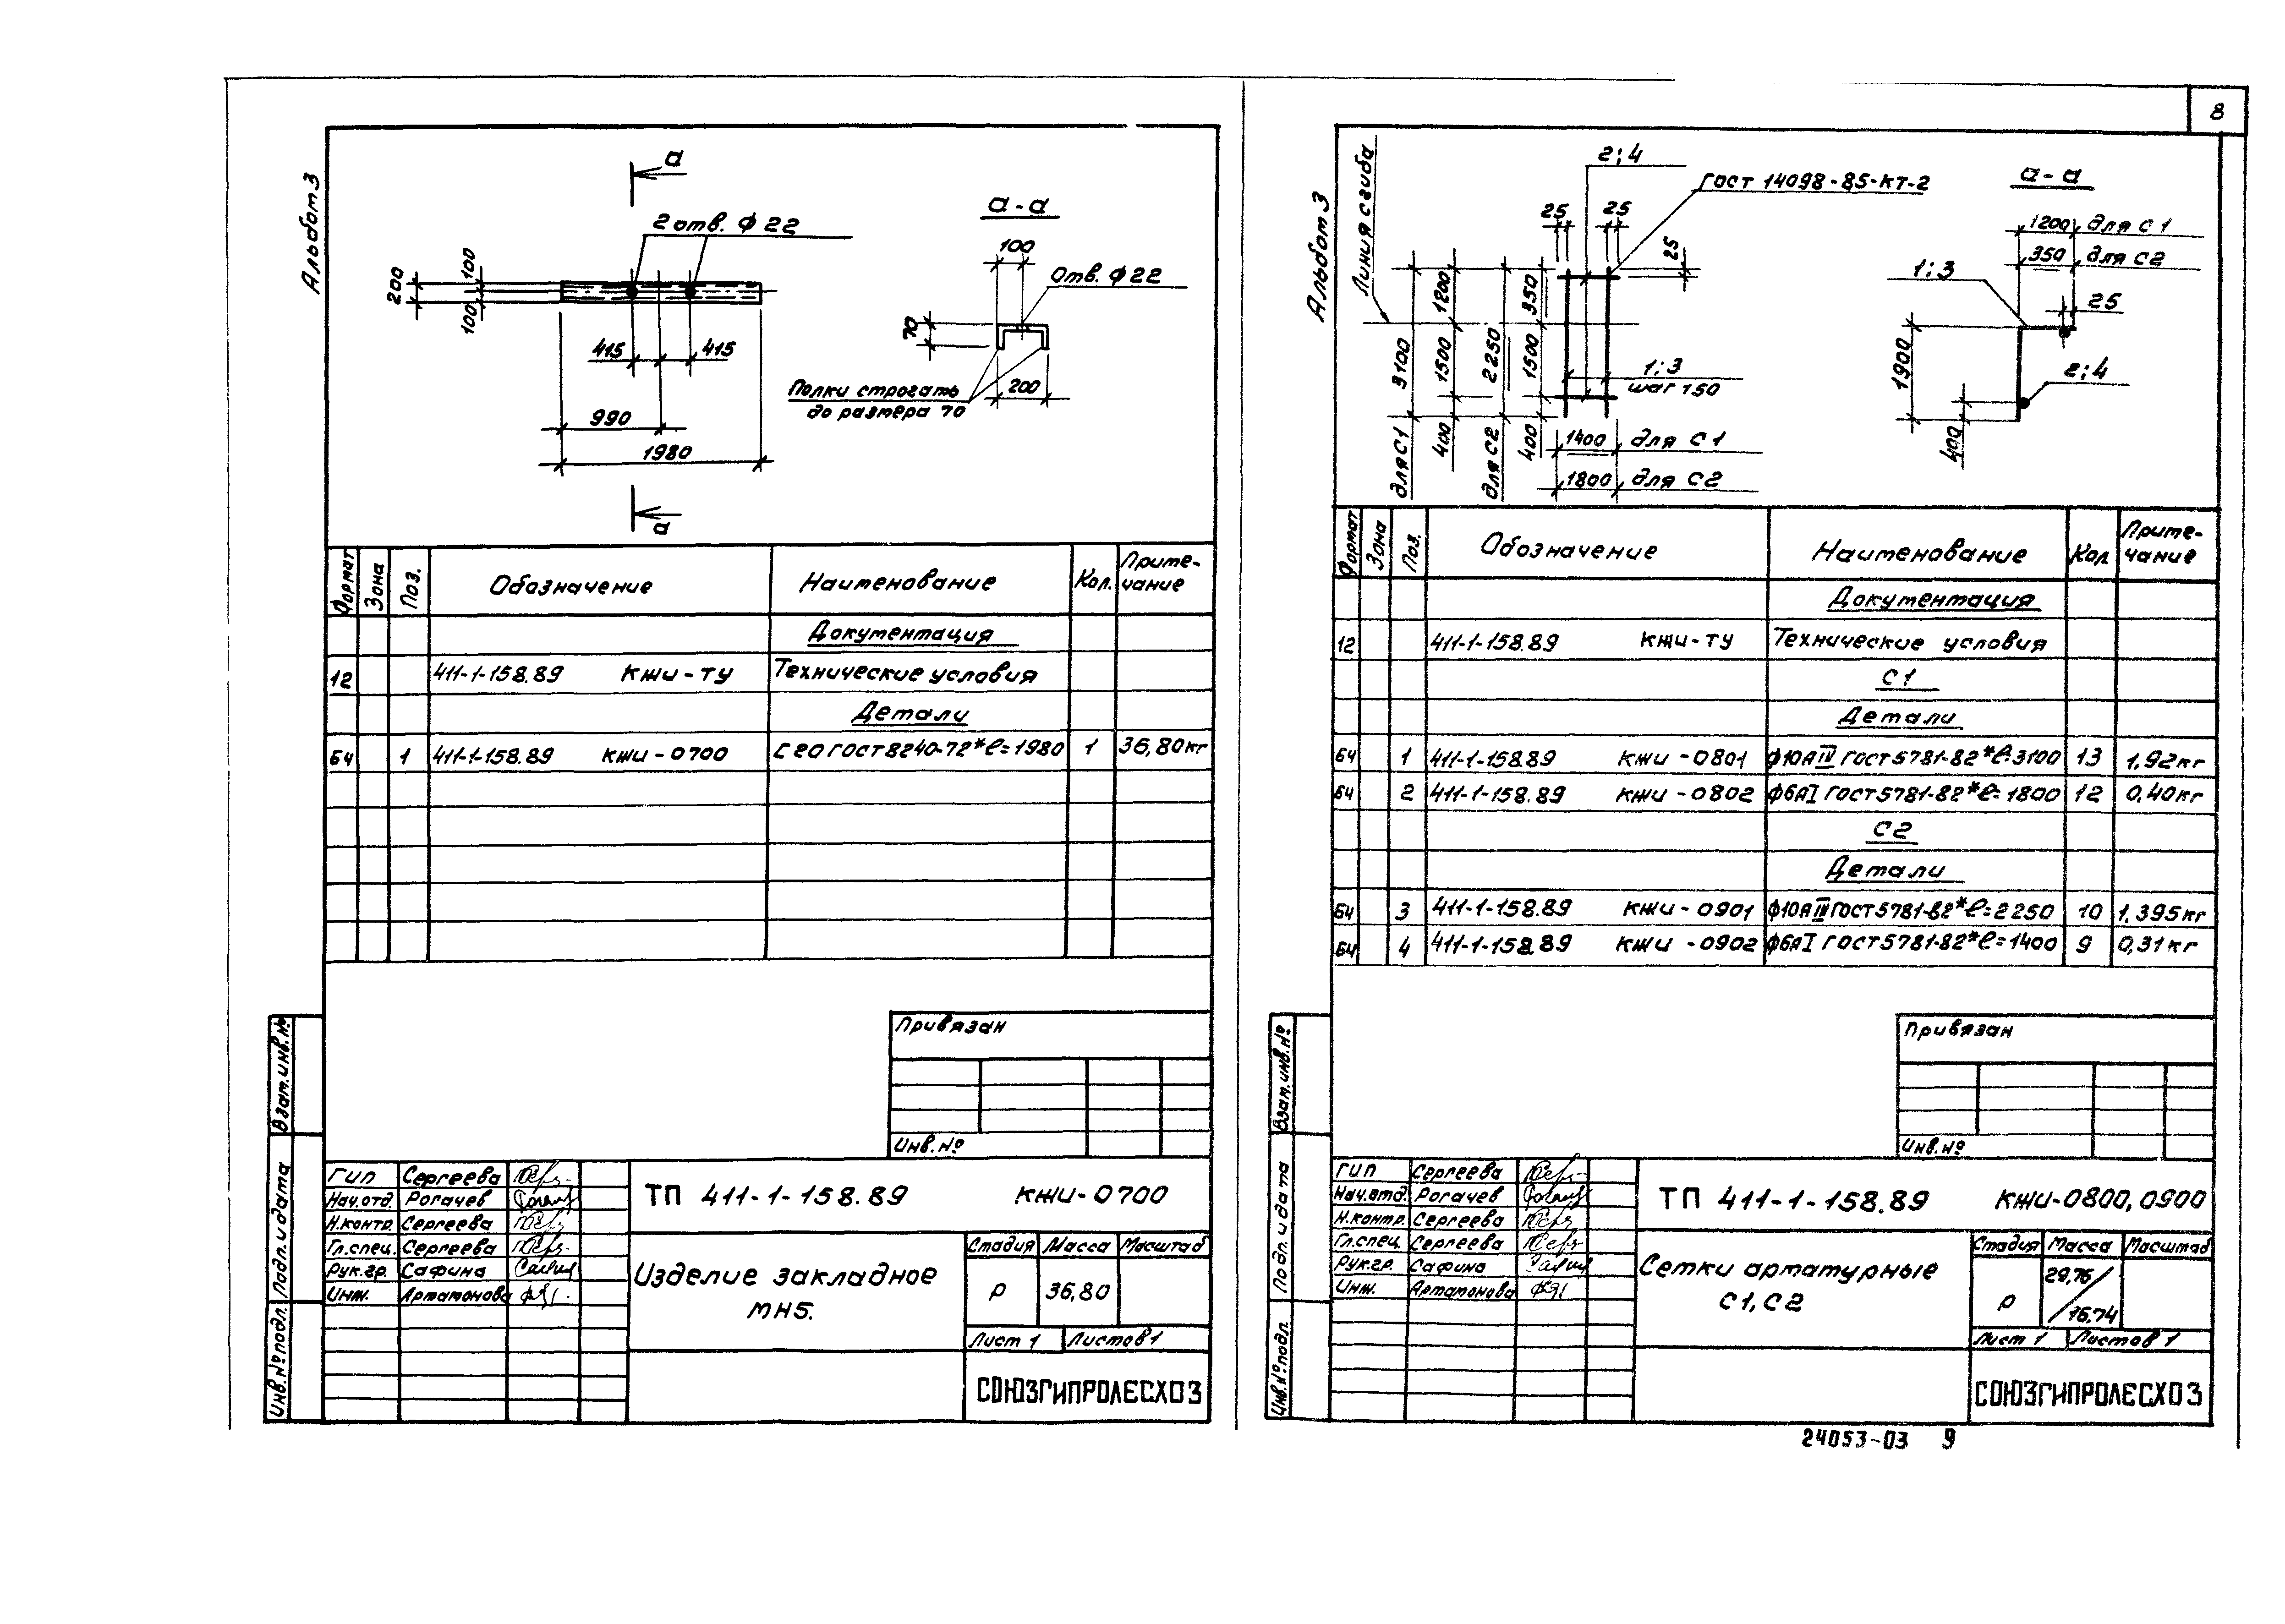 8
Альбом 3
а
2 отв. ф 22
200
100
100
415
415
990
1980
а
а-а
100
Отв. ф 22
70
200
Полки строгать
до размера 70
Формат Зона Поз. Обозначение Наименование Кол. Приме-
чание
Документация
12 411-1-158.89 КЖИ-ТУ Технические условия
Детали
БЧ 1 411-1-158.89 КЖИ-0700 С 20 ГОСТ 8240-72* ℓ=1980 1 36,80 кг
Привязан
Инв. №
Взам. инв. №
Подп. и дата
Инв. № подл.
ГИП Сергеева
Нач. отд. Рогачев
Н. контр. Сергеева
Гл. спец. Сергеева
Рук. гр. Сафина
Инж. Артамонова
ТП 411-1-158.89 КЖИ-0700
Изделие закладное
МН5.
Стадия Масса Масштаб
Р 36,80
Лист 1 Листов 1
СОЮЗГИПРОЛЕСХОЗ
Альбом 3
Линия сгиба
2; 4
ГОСТ 14098-85-КТ-2
25
25
25
1200
350
3100
1500
2250
1500
для С1
400
для С2
400
1; 3
шаг 150
1400 для С1
1800 для С2
а-а
1200 для С1
350 для С2
1; 3
25
1900
2; 4
400
Формат Зона Поз. Обозначение Наименование Кол. Приме-
чание
Документация
12 411-1-158.89 КЖИ-ТУ Технические условия
С1
Детали
БЧ 1 411-1-158.89 КЖИ-0801 ф10АIV ГОСТ 5781-82* ℓ=3100 13 1,92 кг
БЧ 2 411-1-158.89 КЖИ-0802 ф6АI ГОСТ 5781-82* ℓ=1800 12 0,40 кг
С2
Детали
БЧ 3 411-1-158.89 КЖИ-0901 ф10АIV ГОСТ 5781-82* ℓ=2250 10 1,395 кг
БЧ 4 411-1-158.89 КЖИ-0902 ф6АI ГОСТ 5781-82* ℓ=1400 9 0,31 кг
Привязан
Инв. №
Взам. инв. №
Подп. и дата
Инв. № подл.
ГИП Сергеева
Нач. отд. Рогачев
Н. контр. Сергеева
Гл. спец. Сергеева
Рук. гр. Сафина
Инж. Артамонова
ТП 411-1-158.89 КЖИ-0800, 0900
Сетки арматурные
С1, С2
Стадия Масса Масштаб
Р 29,76 / 16,74
Лист 1 Листов 1
СОЮЗГИПРОЛЕСХОЗ
24053-03 9